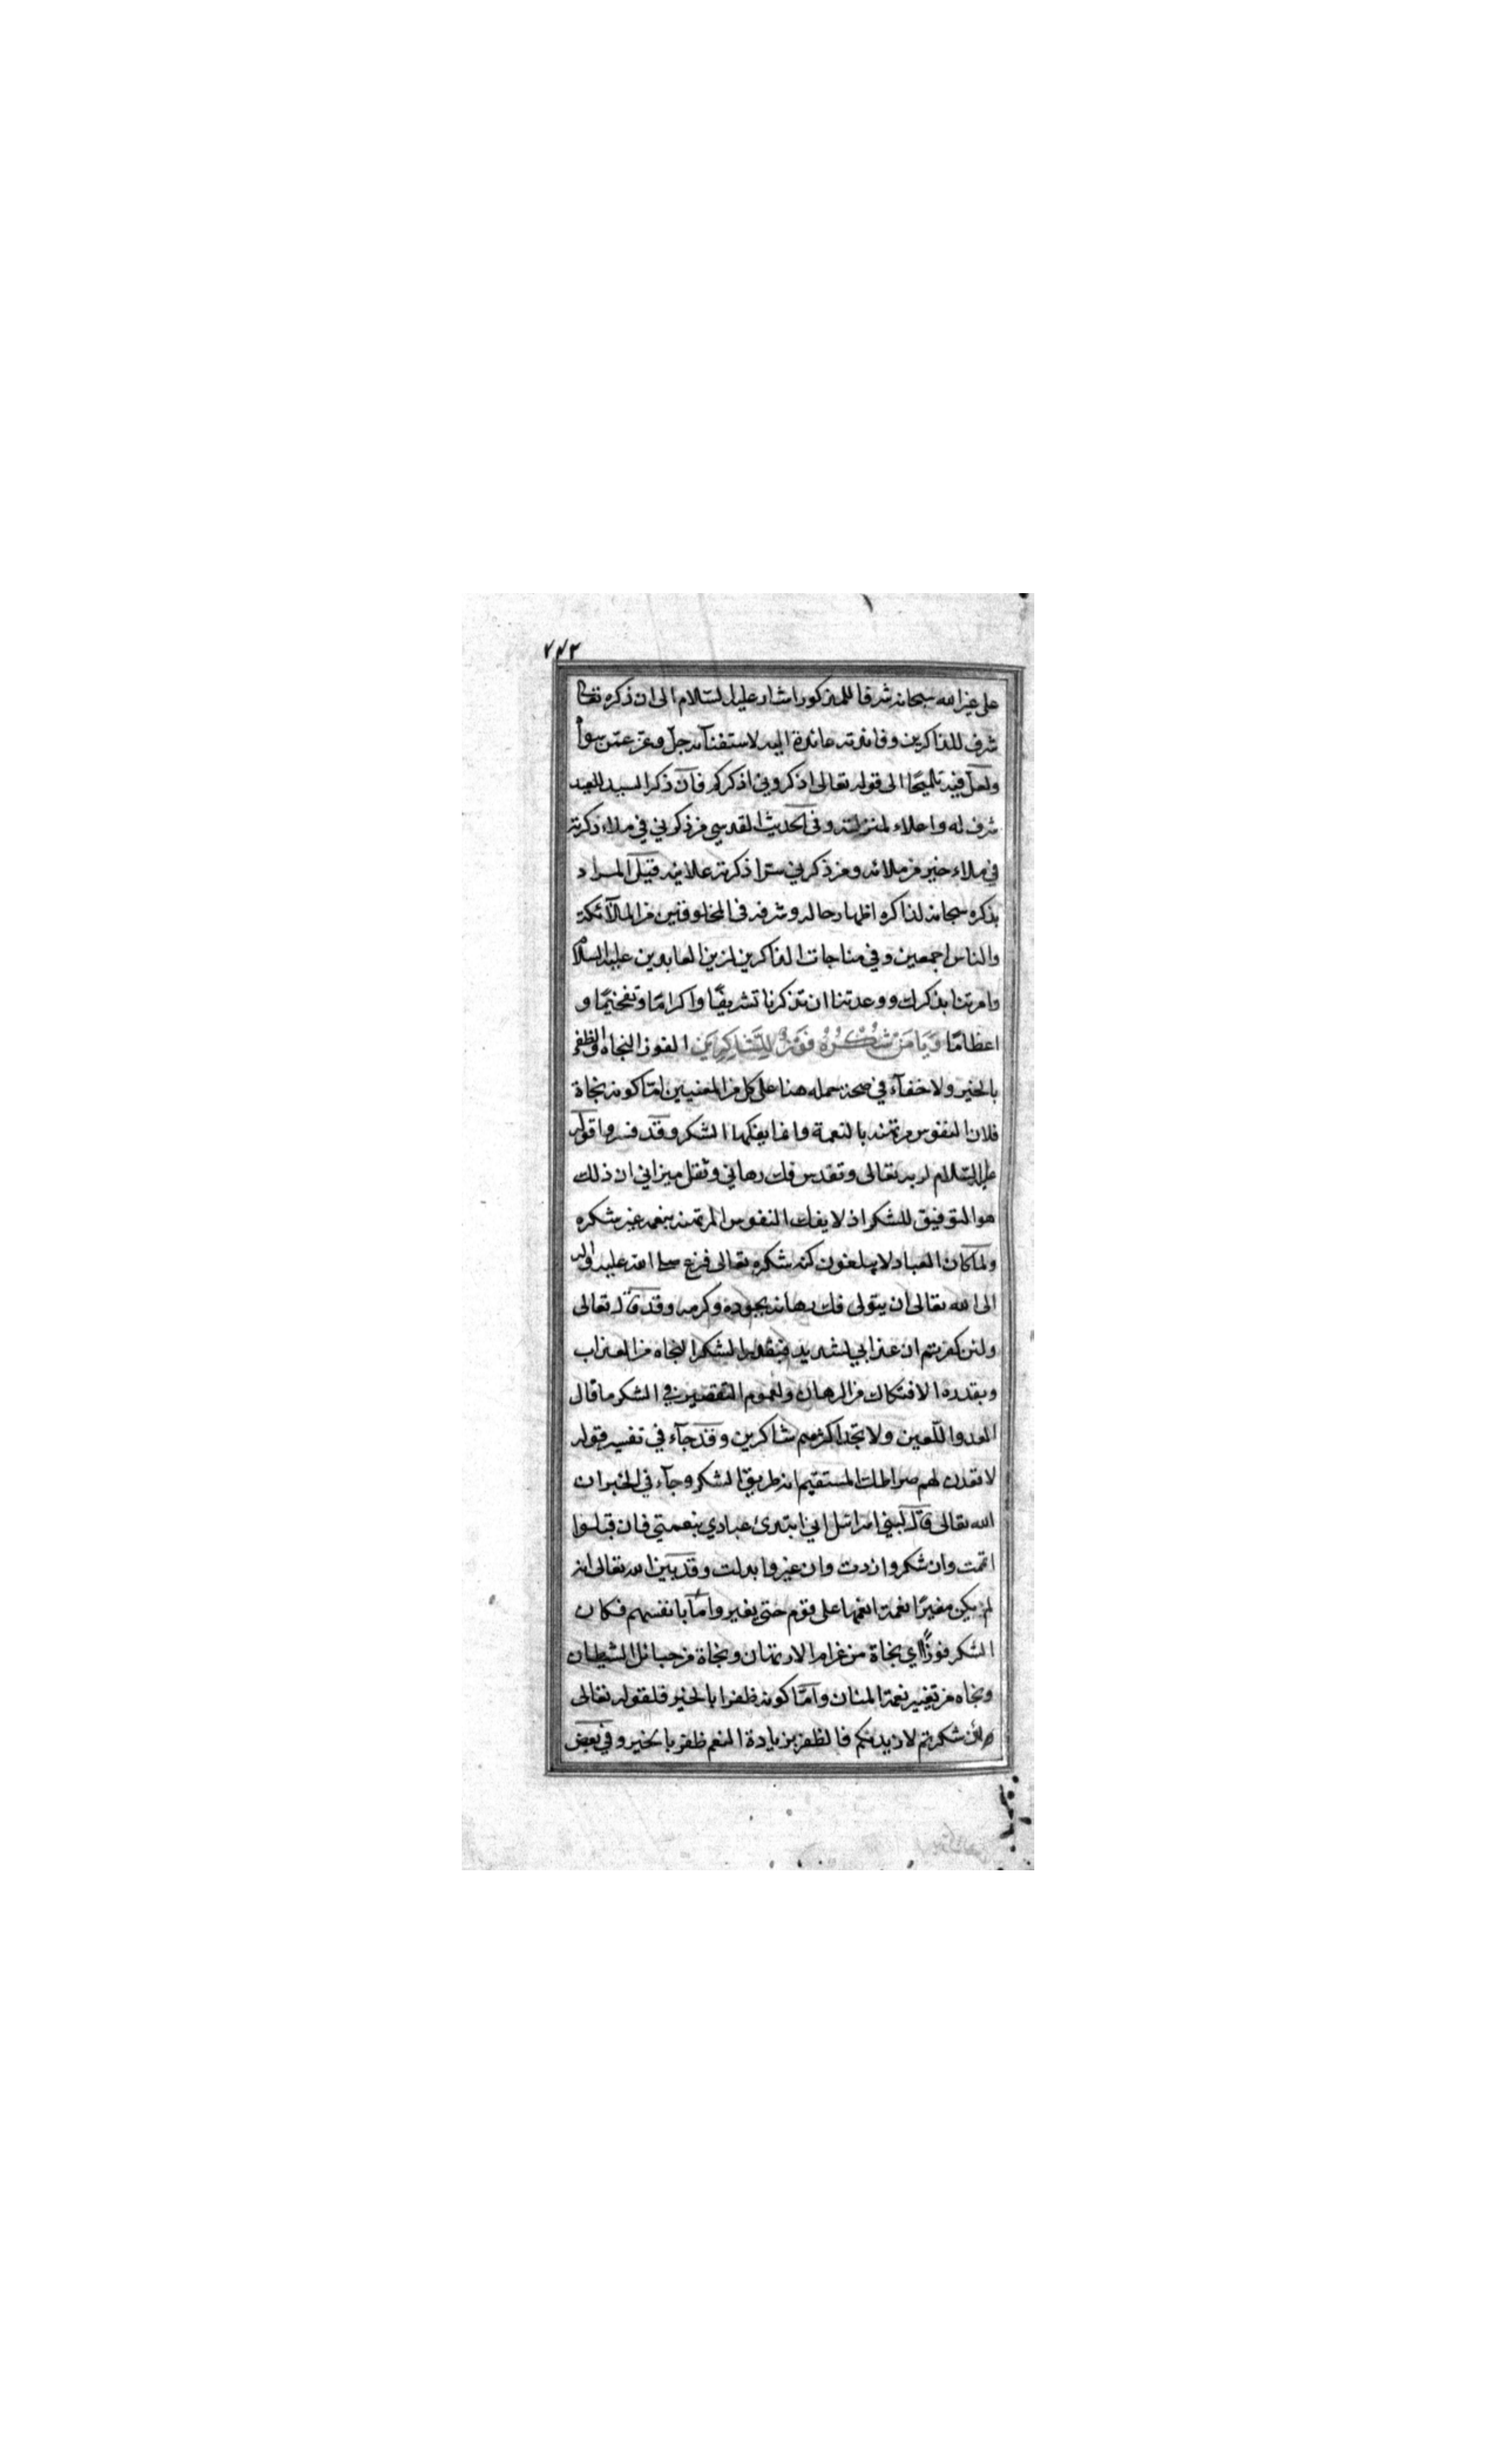 ٧٧٢
على غير الله سبحانه شرفا للمذكور اشار عليه السلام الى ان ذكره تعالى
شرف للذاكرين وفائدته عائدة اليه لاستغنائه جل وعز عمن سواه
ولعل فيه تلميحا الى قوله تعالى اذكروني اذكركم فان ذكر السيد للعبد
شرف له واعلاء لمنزلته وفي الحديث القدسي من ذكرني في ملاء ذكرته
في ملاء خير من ملائه ومن ذكرني سرا ذكرته علانية قيل المراد
بذكره سبحانه لذاكره اظهار حاله وشرفه في المخلوقين من الملآئكة
والناس اجمعين وفي مناجات الذاكرين لزين العابدين عليه السلام
وامرتنا بذكرك ووعدتنا ان تذكرنا تشريفًا واكرامًا وتفخيمًا و
اعظامًا وَيَا مَنْ شُكْرُهُ فَوْزٌ لِلشَّاكِرِينَ الفوز النجاة والظفر
بالخير ولا خفآء في صحة حمله هنا على كل من المعنيين امّا كونه نجاة
فلان النفوس مرتهنة بالنعمة وانما يفكها الشكر وقد فسروا قوله
عليه السلام لربه تعالى وتقدس فك رهاني وثقل ميزاني ان ذلك
هو التوفيق للشكر اذ لا يفك النفوس المرتهنة بنعمه غير شكره
ولما كان العباد لا يبلغون كنه شكره تعالى فزع صلى الله عليه واله
الى الله تعالى ان يتولى فك رهانه بجوده وكرمه وقد قال تعالى
ولئن كفرتم ان عذابي لشديد فبقدر الشكر النجاه من العذاب
وبقدره الافتكاك من الرهان ولعموم التقصير في الشكر ما قال
العدو اللعين ولا تجد اكثرهم شاكرين وقد جآء في تفسير قوله
لاقعدن لهم صراطك المستقيم انه طريق الشكر وجآء في الخبر ان
الله تعالى قال لبني اسرائيل اني ابتدئ عبادي بنعمتي فان قبلوا
اتممت وان شكروا زدت وان غيروا بدلت وقد بين الله تعالى انه
لم يكن مغيرًا نعمة انعمها على قوم حتى يغيروا ما بانفسهم فكان
الشكر فوزًا اي نجاة من غرام الارتهان ونجاة من حبائل الشيطان
ونجاه من تغيير نعمة المنان وامّا كونه ظفرا بالخير فلقوله تعالى
ولئن شكرتم لازيدنكم فالظفر بزيادة النعم ظفر بالخير وفي بعض